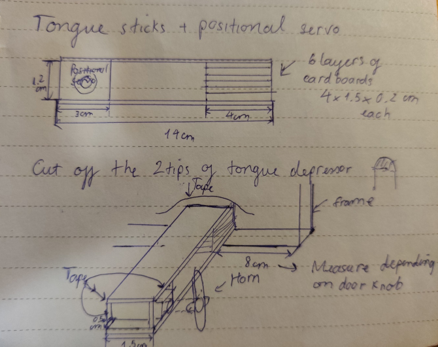 Tongue sticks + positional servo
Positional
servo
1.2
cm
3cm
4cm
14cm
6 layers of
cardboards
4 x 1.5 x 0.2 cm
each
Cut off the 2 tips of tongue depressor
Tape
frame
8cm
Measure depending
on door knob
Horn
Tape
cm
1.5cm